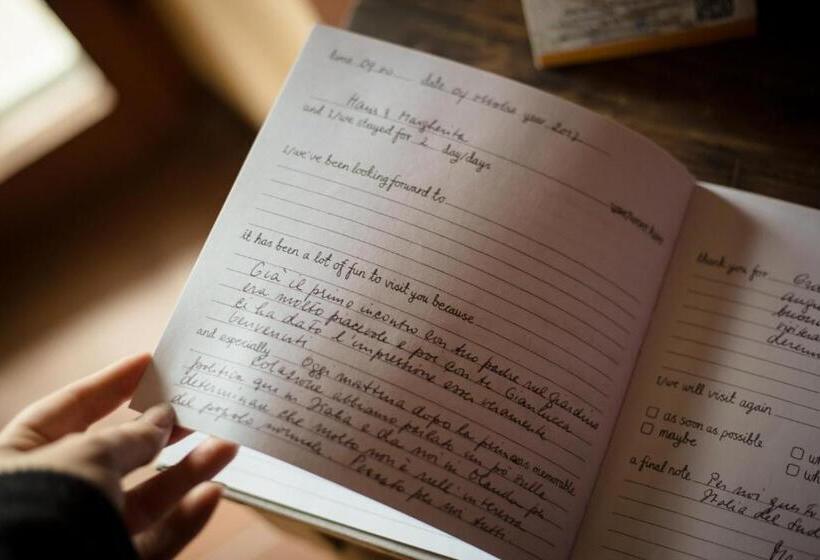 date 09 year 2017
Hans & Margherita
and I/we stayed for 2 day/days
I/we've been looking forward to
it has been a lot of fun to visit you because
Già il primo incontro con tuo padre nel giardino
era molto piacevole e poi con te Gianluca
ci ha dato l'impressione esser veramente
benvenuti.
and especially Oggi mattina dopo la
colazione abbiamo parlato un pò sulla
memorable
politica qui in Italia e da noi in Olanda per
determinare che molto non è nell'interesse
del popolo normale. per noi tutti.
thank you for
I/we will visit again
as soon as possible
maybe
a final note Per noi
Italia del Sud